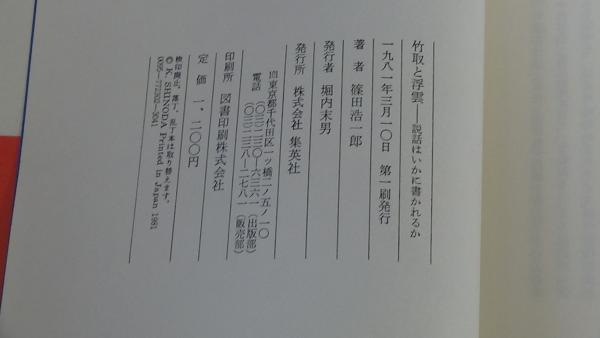 竹取と浮雲――説話はいかに書かれるか
一九八一年三月一〇日 第一刷発行
著者 篠田浩一郎
発行者 堀内末男
発行所 株式会社 集英社
東京都千代田区一ツ橋二ノ五ノ一〇
電話 (〇三)二三〇―六三六一(出版部)
(〇三)二三八―二七八一(販売部)
印刷所 図書印刷株式会社
定価 一、二〇〇円
検印廃止。落丁、乱丁本は取り替えます。
© K. SHINODA Printed in Japan 1981
0095―772302―3041